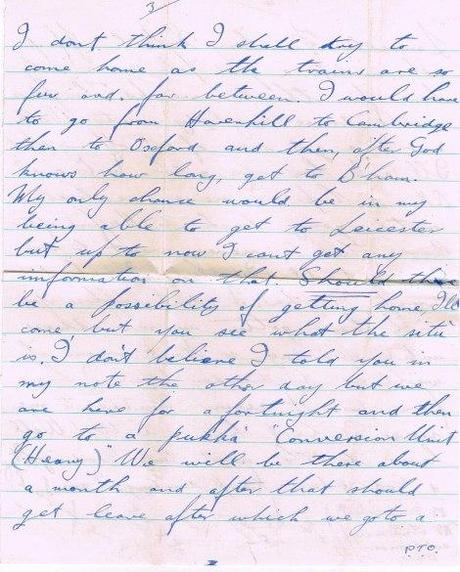 3/
I dont think I shall try to
come home as the trains are so
few and. far between. I would have
to go from Haverhill to Cambridge
then to Oxford and then, after God
knows how long, get to B'ham.
My only chance would be in my
being able to get to Leicester
but up to now I cant get any
information on that. Should there
be a possibility of getting home, I'll
come, but you see what the situ
is. I don't believe I told you in
my note the other day but we
are here for a fortnight and then
go to a pukka "Conversion Unit
(Heavy)" We will be there about
a month and after that should
get leave after which we go to a
P.T.O.